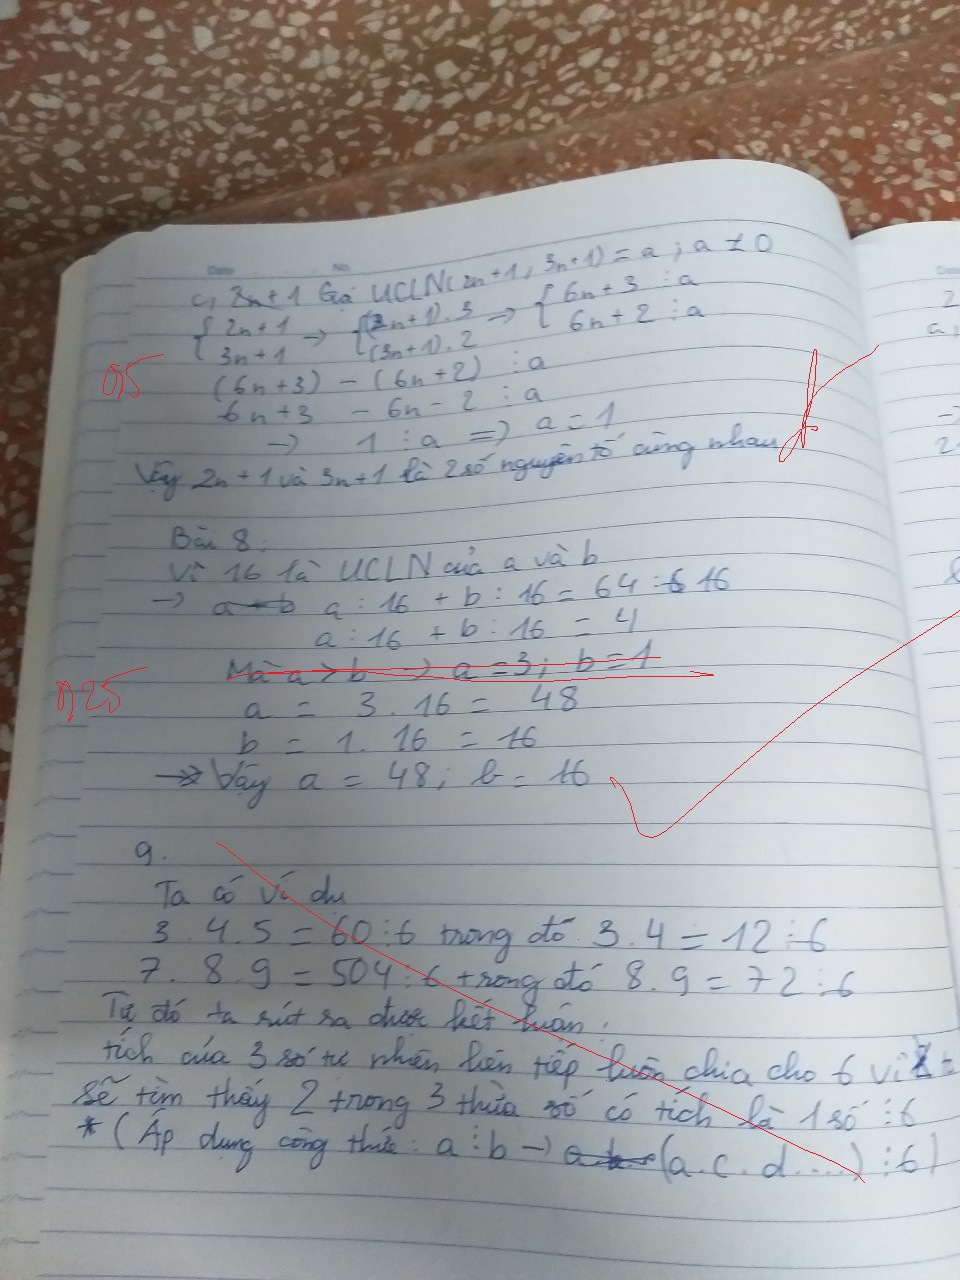 Date No.
c, 3n+1 Gọi UCLN(2n+1, 3n+1) = a ; a ≠ 0
{ 2n+1 → { (2n+1).3 → { 6n+3 ⋮ a
3n+1 (3n+1).2 6n+2 ⋮ a
0,5
(6n+3) - (6n+2) ⋮ a
6n+3 - 6n-2 ⋮ a
→ 1 ⋮ a => a = 1
Vậy 2n+1 và 3n+1 là 2 số nguyên tố cùng nhau
Bài 8:
Vì 16 là UCLN của a và b
→ a b a : 16 + b : 16 = 64 : 16
a : 16 + b : 16 = 4
Mà a > b → a = 3; b = 1
0,25
a = 3 . 16 = 48
b = 1 . 16 = 16
→ Vậy a = 48; b = 16
9.
Ta có ví dụ
3 . 4 . 5 = 60 ⋮ 6 trong đó 3 . 4 = 12 ⋮ 6
7 . 8 . 9 = 504 ⋮ 6 trong đó 8 . 9 = 72 ⋮ 6
Từ đó ta rút ra được kết luận:
tích của 3 số tự nhiên liên tiếp luôn chia cho 6 vì
sẽ tìm thấy 2 trong 3 thừa số có tích là 1 số ⋮ 6
* (Áp dụng công thức: a ⋮ b → (a.c.d....) ⋮ 6)
Date
2
a,
→
2